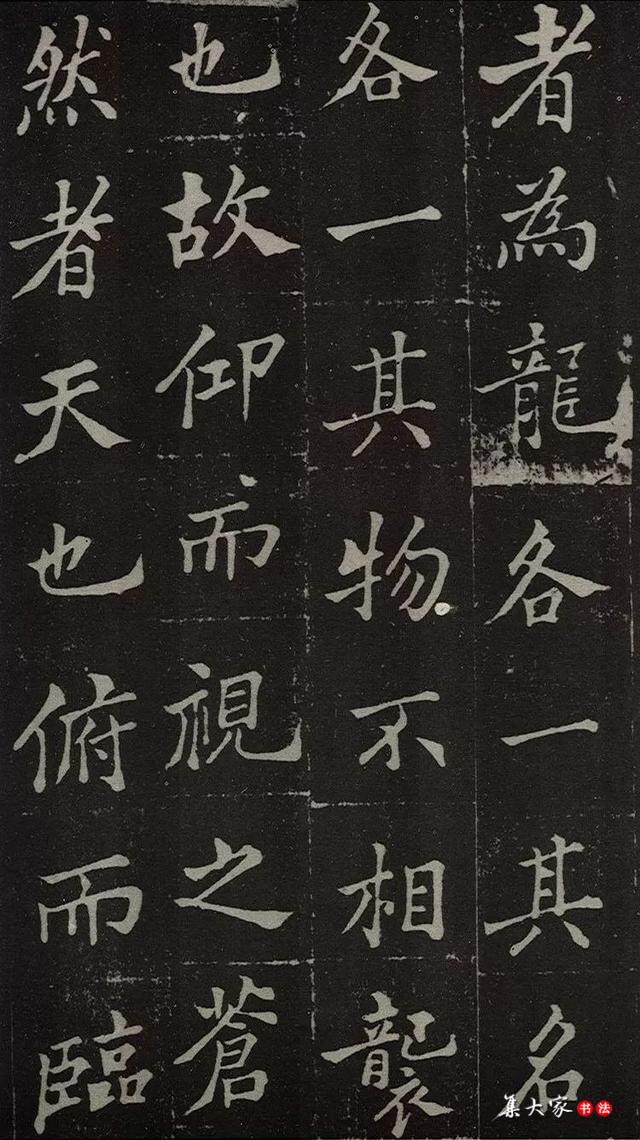 者為龍各一其名
各一其物不相襲
也故仰而視之蒼
然者天也俯而臨
集大家書法